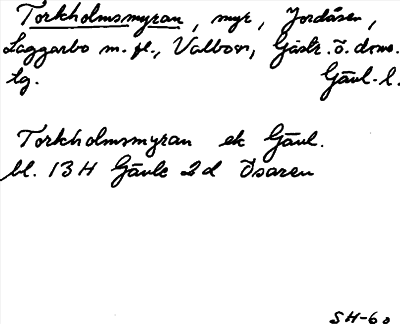 Torkholmsmyran, myr, Jordåsen,
Laggarbo m. fl., Valbo sn, Gästr. ö. doms.
tg. Gävl. l.
Torkholmsmyran ek Gävl.
bl. 13 H Gävle 2 d Ösaren
SH-60